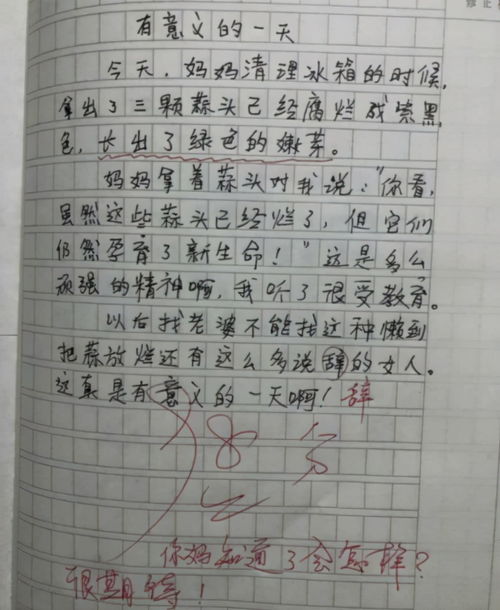 有意义的一天
今天，妈妈清理冰箱的时候，
拿出了三颗蒜头已经腐烂成紫黑
色，长出了绿色的嫩芽。
妈妈拿着蒜头对我说：“你看，
虽然这些蒜头已经烂了，但它们
仍然孕育了新生命！”这是多么
顽强的精神啊，我听了很受教育。
以后找老婆不能找这种懒到
把蒜放烂还有这么多说辞的女人。
这真是有意义的一天啊！辞
28分
你妈知道了会怎样？
很期待！